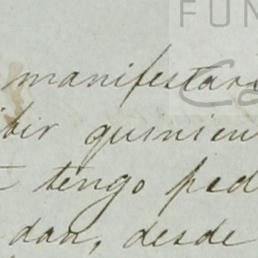 FUN
Ca
manifestar
ibir quinien
tengo ped
dan, desde